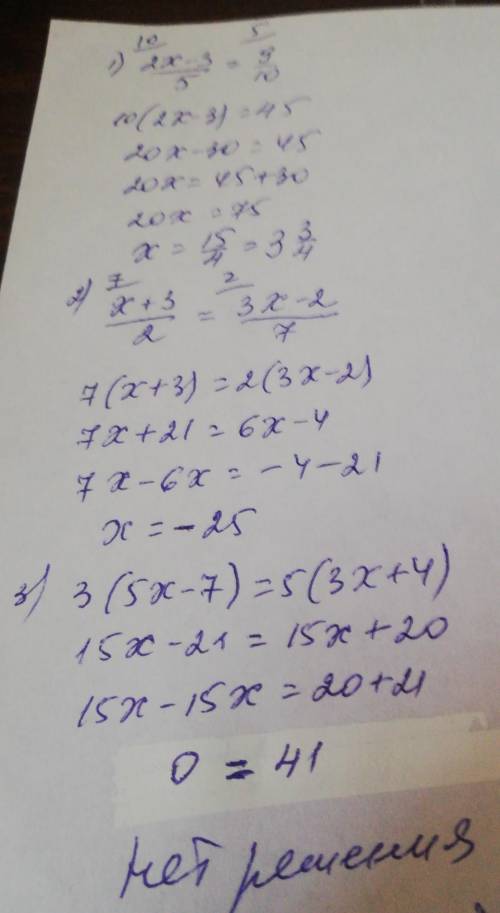 1) 10/ (2x-3)/5 = 5/ 9/10
10(2x-3)=45
20x-30=45
20x=45+30
20x=75
x=15/4=3 3/4
2) 7/ (x+3)/2 = 2/ (3x-2)/7
7(x+3)=2(3x-2)
7x+21=6x-4
7x-6x=-4-21
x=-25
3) 3(5x-7)=5(3x+4)
15x-21=15x+20
15x-15x=20+21
0=41
нет решения